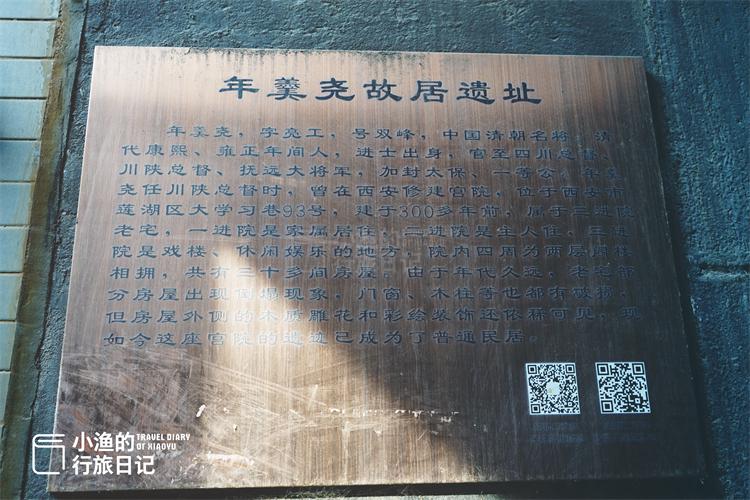 年羹尧故居遗址
年羹尧，字亮工，号双峰，中国清朝名将，清
代康熙、雍正年间人，进士出身，官至四川总督、
川陕总督、抚远大将军，加封太保、一等公，年羹
尧任川陕总督时，曾在西安修建宫院，位于西安市
莲湖区大学习巷93号，建于300多年前，属于三进院
老宅，一进院是家属居住，二进院是主人住，三进
院是戏楼、休闲娱乐的地方，院内四周为两层阁楼
相拥，共有三十多间房屋，由于年代久远，老宅部
分房屋出现倒塌现象，门窗、木柱等也都有破损，
但房屋外侧的木质雕花和彩绘装饰还依稀可见，现
如今这座宫院的遗迹已成为了普通民居。
小渔的
行旅日记
TRAVEL DIARY
OF XIAOYU